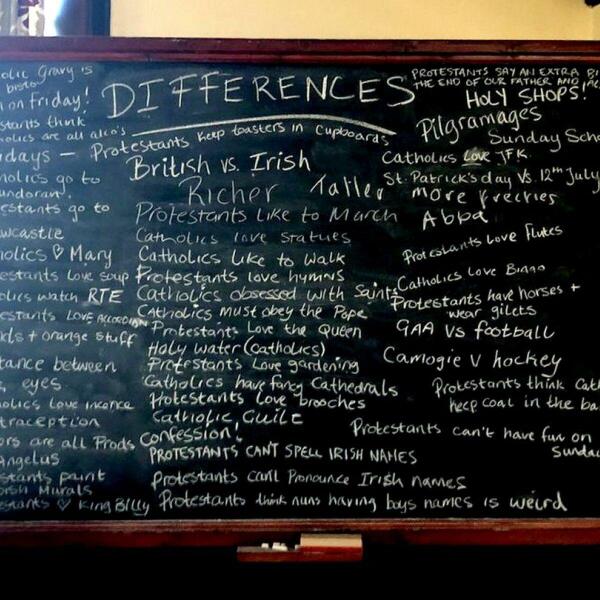 DIFFERENCES
olic Gravy is
bisto
on Friday!
stants think
olics are all alco's
days — Protestants keep toasters in cupboards
holics go to
undoran.
estants go to
wcastle
holics ♡ Mary
estants love soup
olics watch RTE
estants LOVE ACCORDIAN
ds + orange stuff
tance between
eyes
holics love incence
traception
ors are all Prods
Angelus
stants paint
Murals
estants ♡ King Billy
British vs. Irish
Richer Taller
Protestants like to March
Catholics love statues
Catholics like to walk
Protestants love hymns
Catholics obsessed with Saints
Catholics must obey the Pope
Protestants Love the Queen
Holy water (Catholics)
Protestants Love gardening
Catholics have fancy Cathedrals
Protestants love brooches
Catholic Guilt
Confession!
PROTESTANTS CAN'T SPELL IRISH NAMES
Protestants can't Pronounce Irish names
Protestants think nuns having boys names is weird
PROTESTANTS SAY AN EXTRA BI
THE END OF OUR FATHER AND
HOLY SHOPS!
Pilgramages
Sunday Scho
Catholics Love JFK
St. Patrick's day Vs. 12th July
more freckles
Abba
Protestants love flutes
Catholics Love Bingo
Protestants have horses +
wear gilets
GAA VS football
Camogie V hockey
Protestants think Cath
keep coal in the ba
Protestants can't have fun on
Sunda